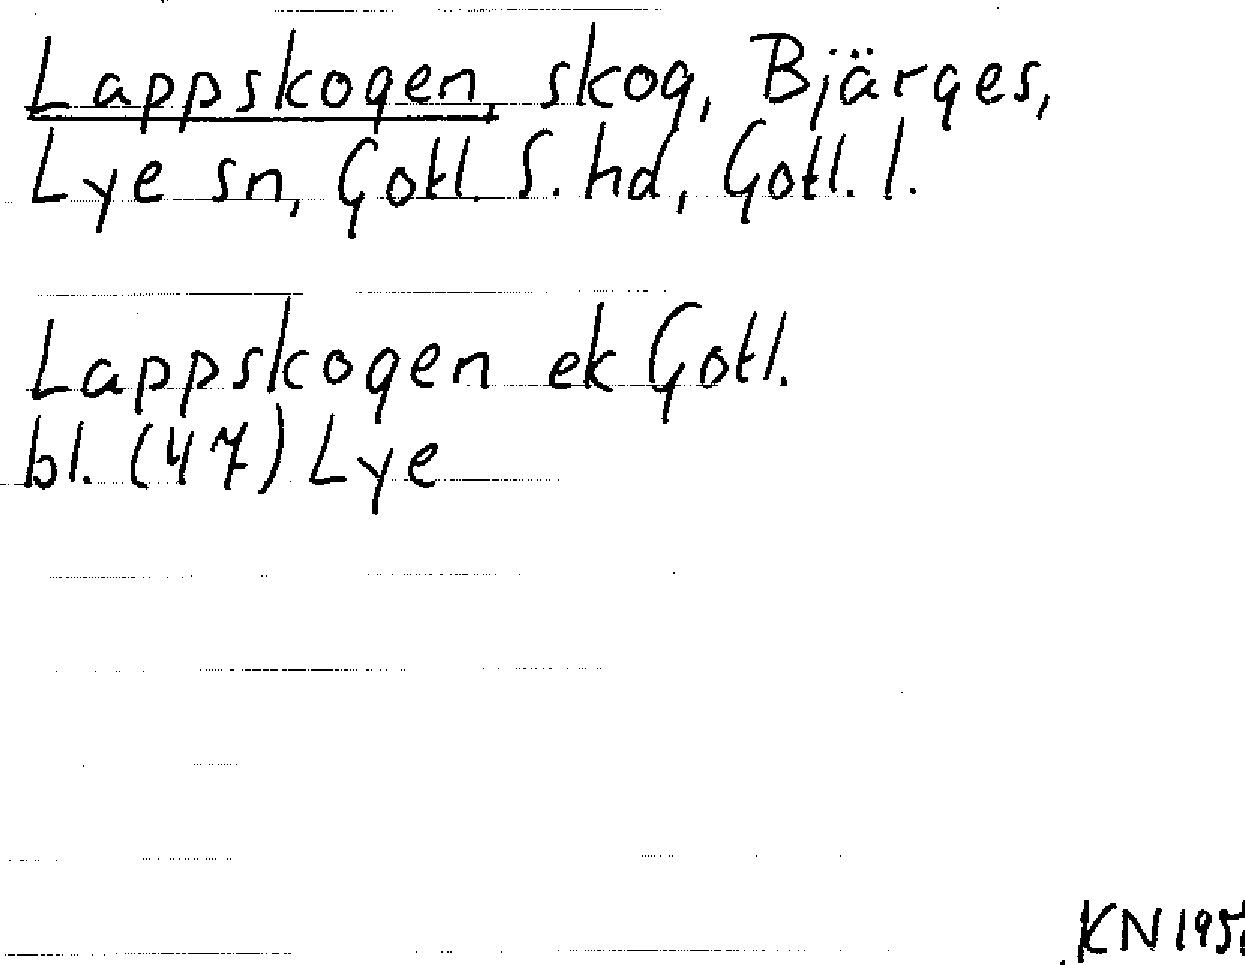 Lappskogen, skog, Bjärges,
Lye sn, Gotl. S. hd, Gotl. l.
Lappskogen ek Gotl.
bl. (47) Lye
KN